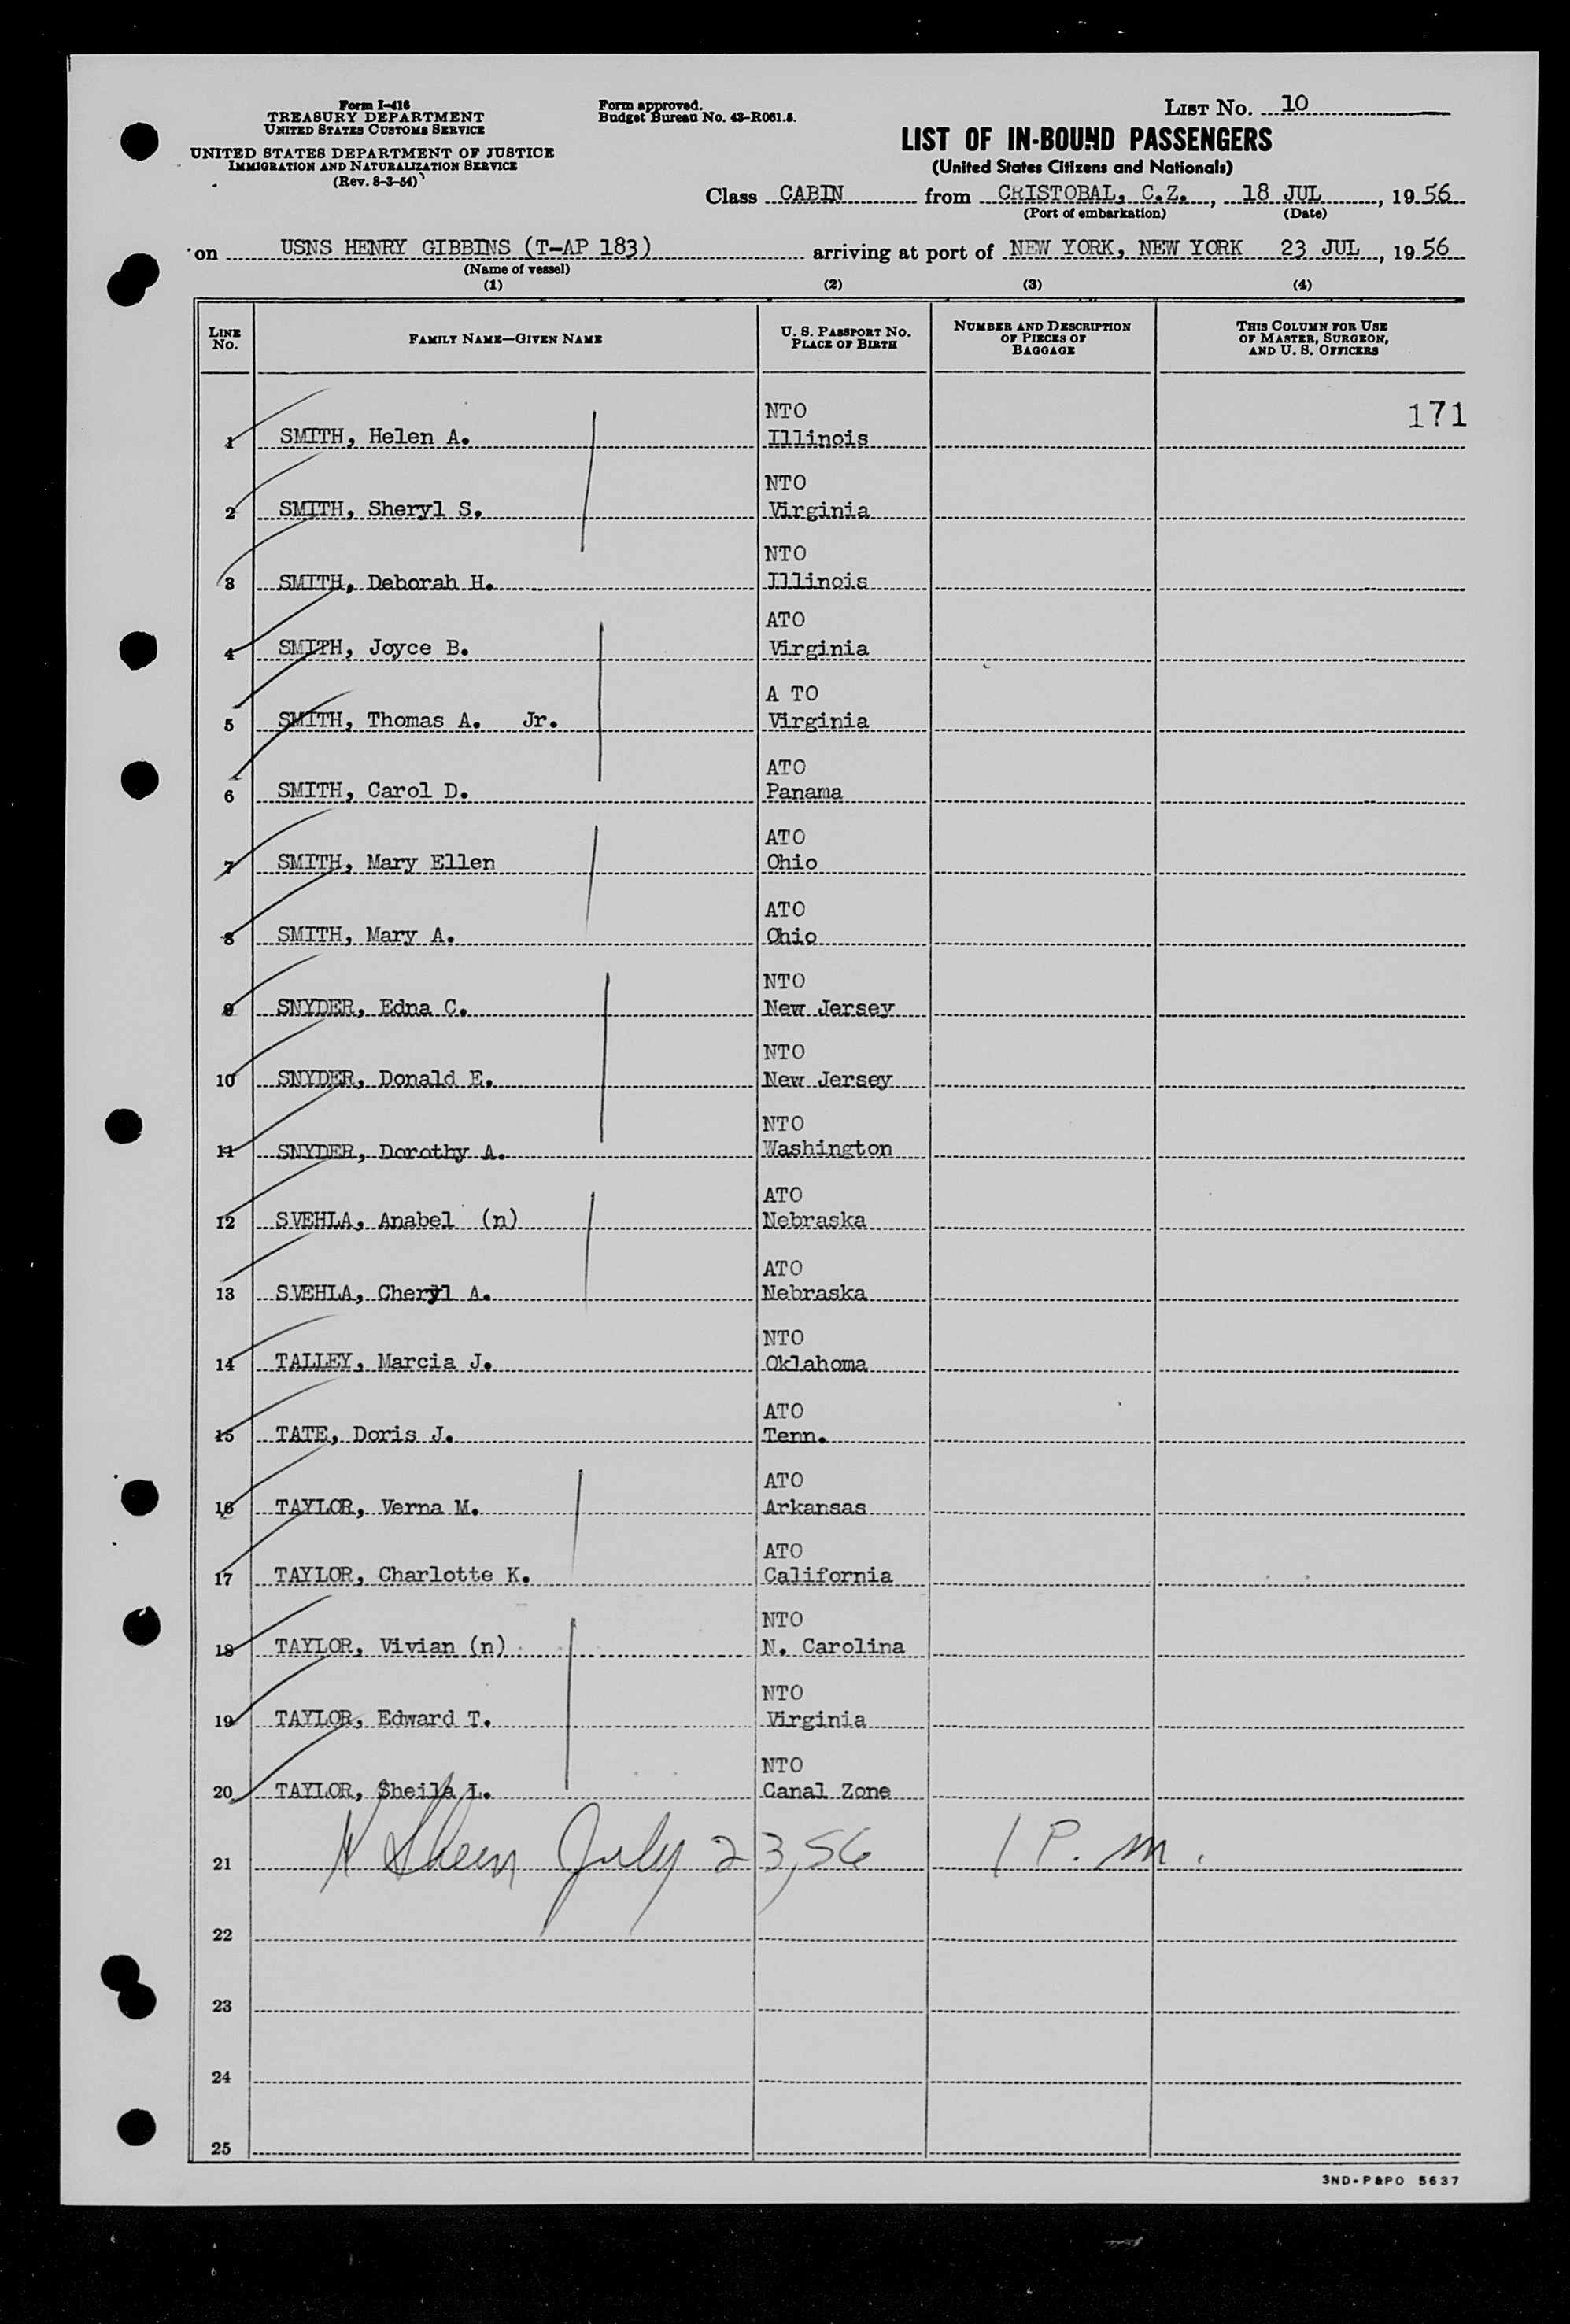 Form I-416
TREASURY DEPARTMENT
UNITED STATES CUSTOMS SERVICE
UNITED STATES DEPARTMENT OF JUSTICE
IMMIGRATION AND NATURALIZATION SERVICE
(Rev. 8-3-54)
Form approved.
Budget Bureau No. 43-R061.8.
LIST No. 10
LIST OF IN-BOUND PASSENGERS
(United States Citizens and Nationals)
Class CABIN from CRISTOBAL, C.Z., 18 JUL, 1956
(Port of embarkation) (Date)
on USNS HENRY GIBBINS (T-AP 183) arriving at port of NEW YORK, NEW YORK 23 JUL, 1956
(Name of vessel)
(1) (2) (3) (4)
LINE No. FAMILY NAME—GIVEN NAME U. S. PASSPORT No. PLACE OF BIRTH NUMBER AND DESCRIPTION OF PIECES OF BAGGAGE THIS COLUMN FOR USE OF MASTER, SURGEON, AND U. S. OFFICERS
NTO 171
1 SMITH, Helen A. Illinois
NTO
2 SMITH, Sheryl S. Virginia
NTO
3 SMITH, Deborah H. Illinois
ATO
4 SMITH, Joyce B. Virginia
A TO
5 SMITH, Thomas A. Jr. Virginia
ATO
6 SMITH, Carol D. Panama
ATO
7 SMITH, Mary Ellen Ohio
ATO
8 SMITH, Mary A. Ohio
NTO
9 SNYDER, Edna C. New Jersey
NTO
10 SNYDER, Donald E. New Jersey
NTO
11 SNYDER, Dorothy A. Washington
ATO
12 SVEHLA, Anabel (n) Nebraska
ATO
13 SVEHLA, Cheryl A. Nebraska
NTO
14 TALLEY, Marcia J. Oklahoma
ATO
15 TATE, Doris J. Tenn.
ATO
16 TAYLOR, Verna M. Arkansas
ATO
17 TAYLOR, Charlotte K. California
NTO
18 TAYLOR, Vivian (n) N. Carolina
NTO
19 TAYLOR, Edward T. Virginia
NTO
20 TAYLOR, Sheila L. Canal Zone
21 July 23, 56 1 P. m.
22
23
24
25
3ND-P&PO 5637